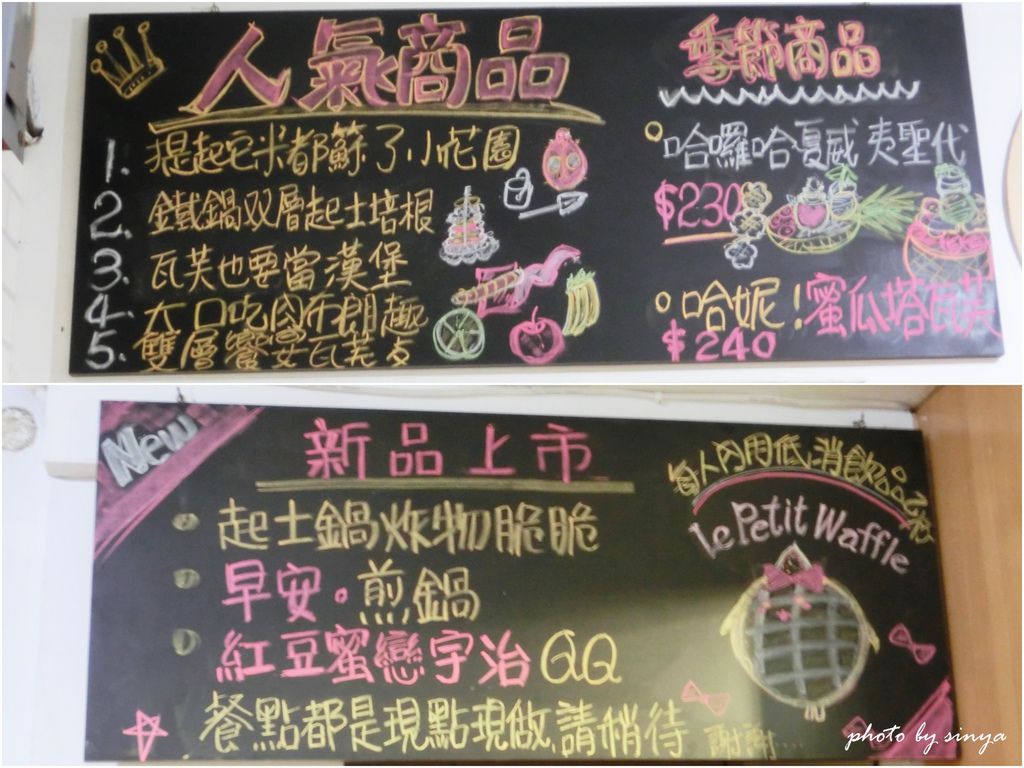 人氣商品
1. 提起宅米都酥了小花園
2. 鐵鍋双層起士培根
3. 瓦芙也要當漢堡
4. 大口吃肉布朗趣
5. 雙層饗宴瓦芙
季節商品
哈囉哈夏威夷聖代
$230
哈妮!蜜瓜塔瓦芙
$240
New
新品上市
起士鍋炸物脆脆
早安。煎鍋
紅豆蜜戀宇治QQ
餐點都是現點現做,請稍待 謝謝...
每人內用低消飲品
Le Petit Waffle
photo by sinya